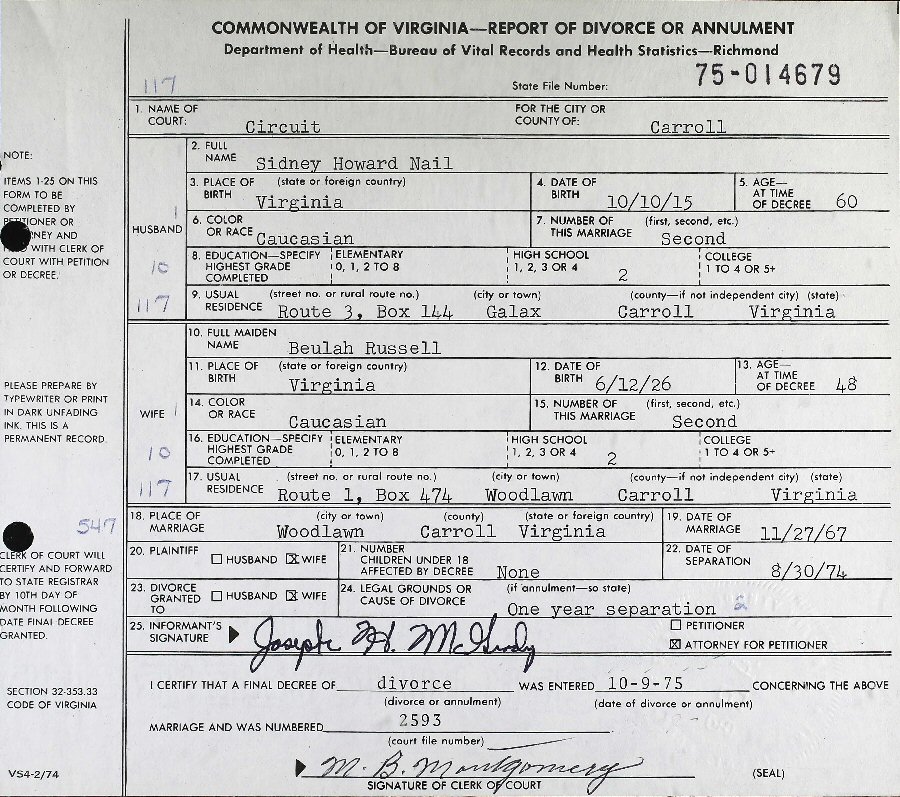 COMMONWEALTH OF VIRGINIA—REPORT OF DIVORCE OR ANNULMENT
Department of Health—Bureau of Vital Records and Health Statistics—Richmond
117 State File Number: 75-014679
1. NAME OF COURT: Circuit FOR THE CITY OR COUNTY OF: Carroll
NOTE:
ITEMS 1-25 ON THIS
FORM TO BE
COMPLETED BY
OR
AND
WITH CLERK OF
COURT WITH PETITION
OR DECREE.
HUSBAND
10
117
2. FULL NAME Sidney Howard Nail
3. PLACE OF BIRTH (state or foreign country) Virginia 4. DATE OF BIRTH 10/10/15 5. AGE— AT TIME OF DECREE 60
6. COLOR OR RACE Caucasian 7. NUMBER OF THIS MARRIAGE (first, second, etc.) Second
8. EDUCATION—SPECIFY HIGHEST GRADE COMPLETED ELEMENTARY 0, 1, 2 TO 8 HIGH SCHOOL 1, 2, 3 OR 4 2 COLLEGE 1 TO 4 OR 5+
9. USUAL RESIDENCE (street no. or rural route no.) (city or town) (county—if not independent city) (state)
Route 3, Box 144 Galax Carroll Virginia
PLEASE PREPARE BY
TYPEWRITER OR PRINT
IN DARK UNFADING
INK. THIS IS A
PERMANENT RECORD.
WIFE
10
117
10. FULL MAIDEN NAME Beulah Russell
11. PLACE OF BIRTH (state or foreign country) Virginia 12. DATE OF BIRTH 6/12/26 13. AGE— AT TIME OF DECREE 48
14. COLOR OR RACE Caucasian 15. NUMBER OF THIS MARRIAGE (first, second, etc.) Second
16. EDUCATION—SPECIFY HIGHEST GRADE COMPLETED ELEMENTARY 0, 1, 2 TO 8 HIGH SCHOOL 1, 2, 3 OR 4 2 COLLEGE 1 TO 4 OR 5+
17. USUAL RESIDENCE (street no. or rural route no.) (city or town) (county—if not independent city) (state)
Route 1, Box 474 Woodlawn Carroll Virginia
18. PLACE OF MARRIAGE (city or town) (county) (state or foreign country) 19. DATE OF MARRIAGE 11/27/67
Woodlawn Carroll Virginia
547
CLERK OF COURT WILL
CERTIFY AND FORWARD
TO STATE REGISTRAR
BY 10TH DAY OF
MONTH FOLLOWING
DATE FINAL DECREE
GRANTED.
20. PLAINTIFF HUSBAND X WIFE 21. NUMBER CHILDREN UNDER 18 AFFECTED BY DECREE None 22. DATE OF SEPARATION 8/30/74
23. DIVORCE GRANTED TO HUSBAND X WIFE 24. LEGAL GROUNDS OR CAUSE OF DIVORCE (if annulment—so state) One year separation 2
25. INFORMANT'S SIGNATURE Joseph H. McGrady PETITIONER
X ATTORNEY FOR PETITIONER
SECTION 32-353.33
CODE OF VIRGINIA
I CERTIFY THAT A FINAL DECREE OF divorce WAS ENTERED 10-9-75 CONCERNING THE ABOVE
(divorce or annulment) (date of divorce or annulment)
MARRIAGE AND WAS NUMBERED 2593
(court file number)
M. B. Montgomery
SIGNATURE OF CLERK OF COURT (SEAL)
VS4-2/74